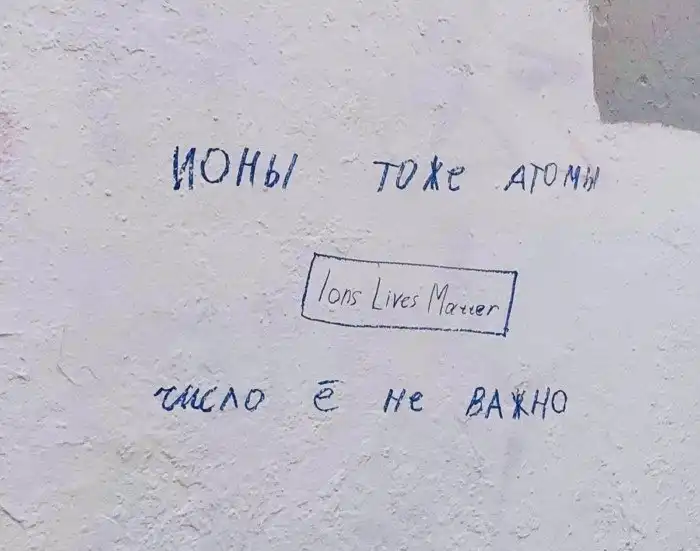 ИОНЫ ТОЖЕ АТОМЫ
Ions Lives Matter
ЧИСЛО ē НЕ ВАЖНО